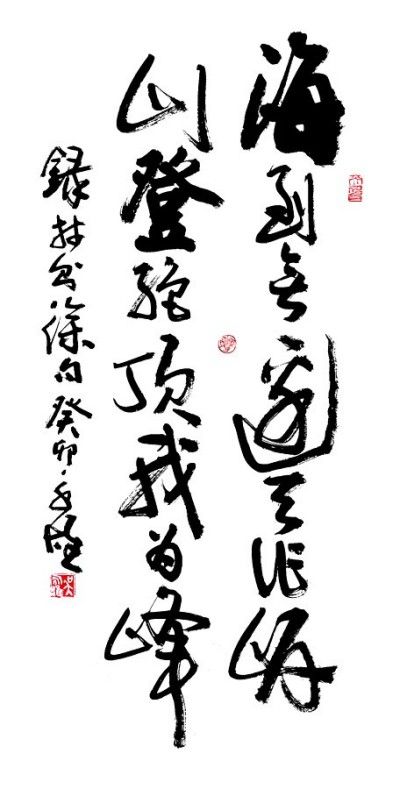 海到无边天作岸
山登绝顶我为峰
录林则徐句癸卯